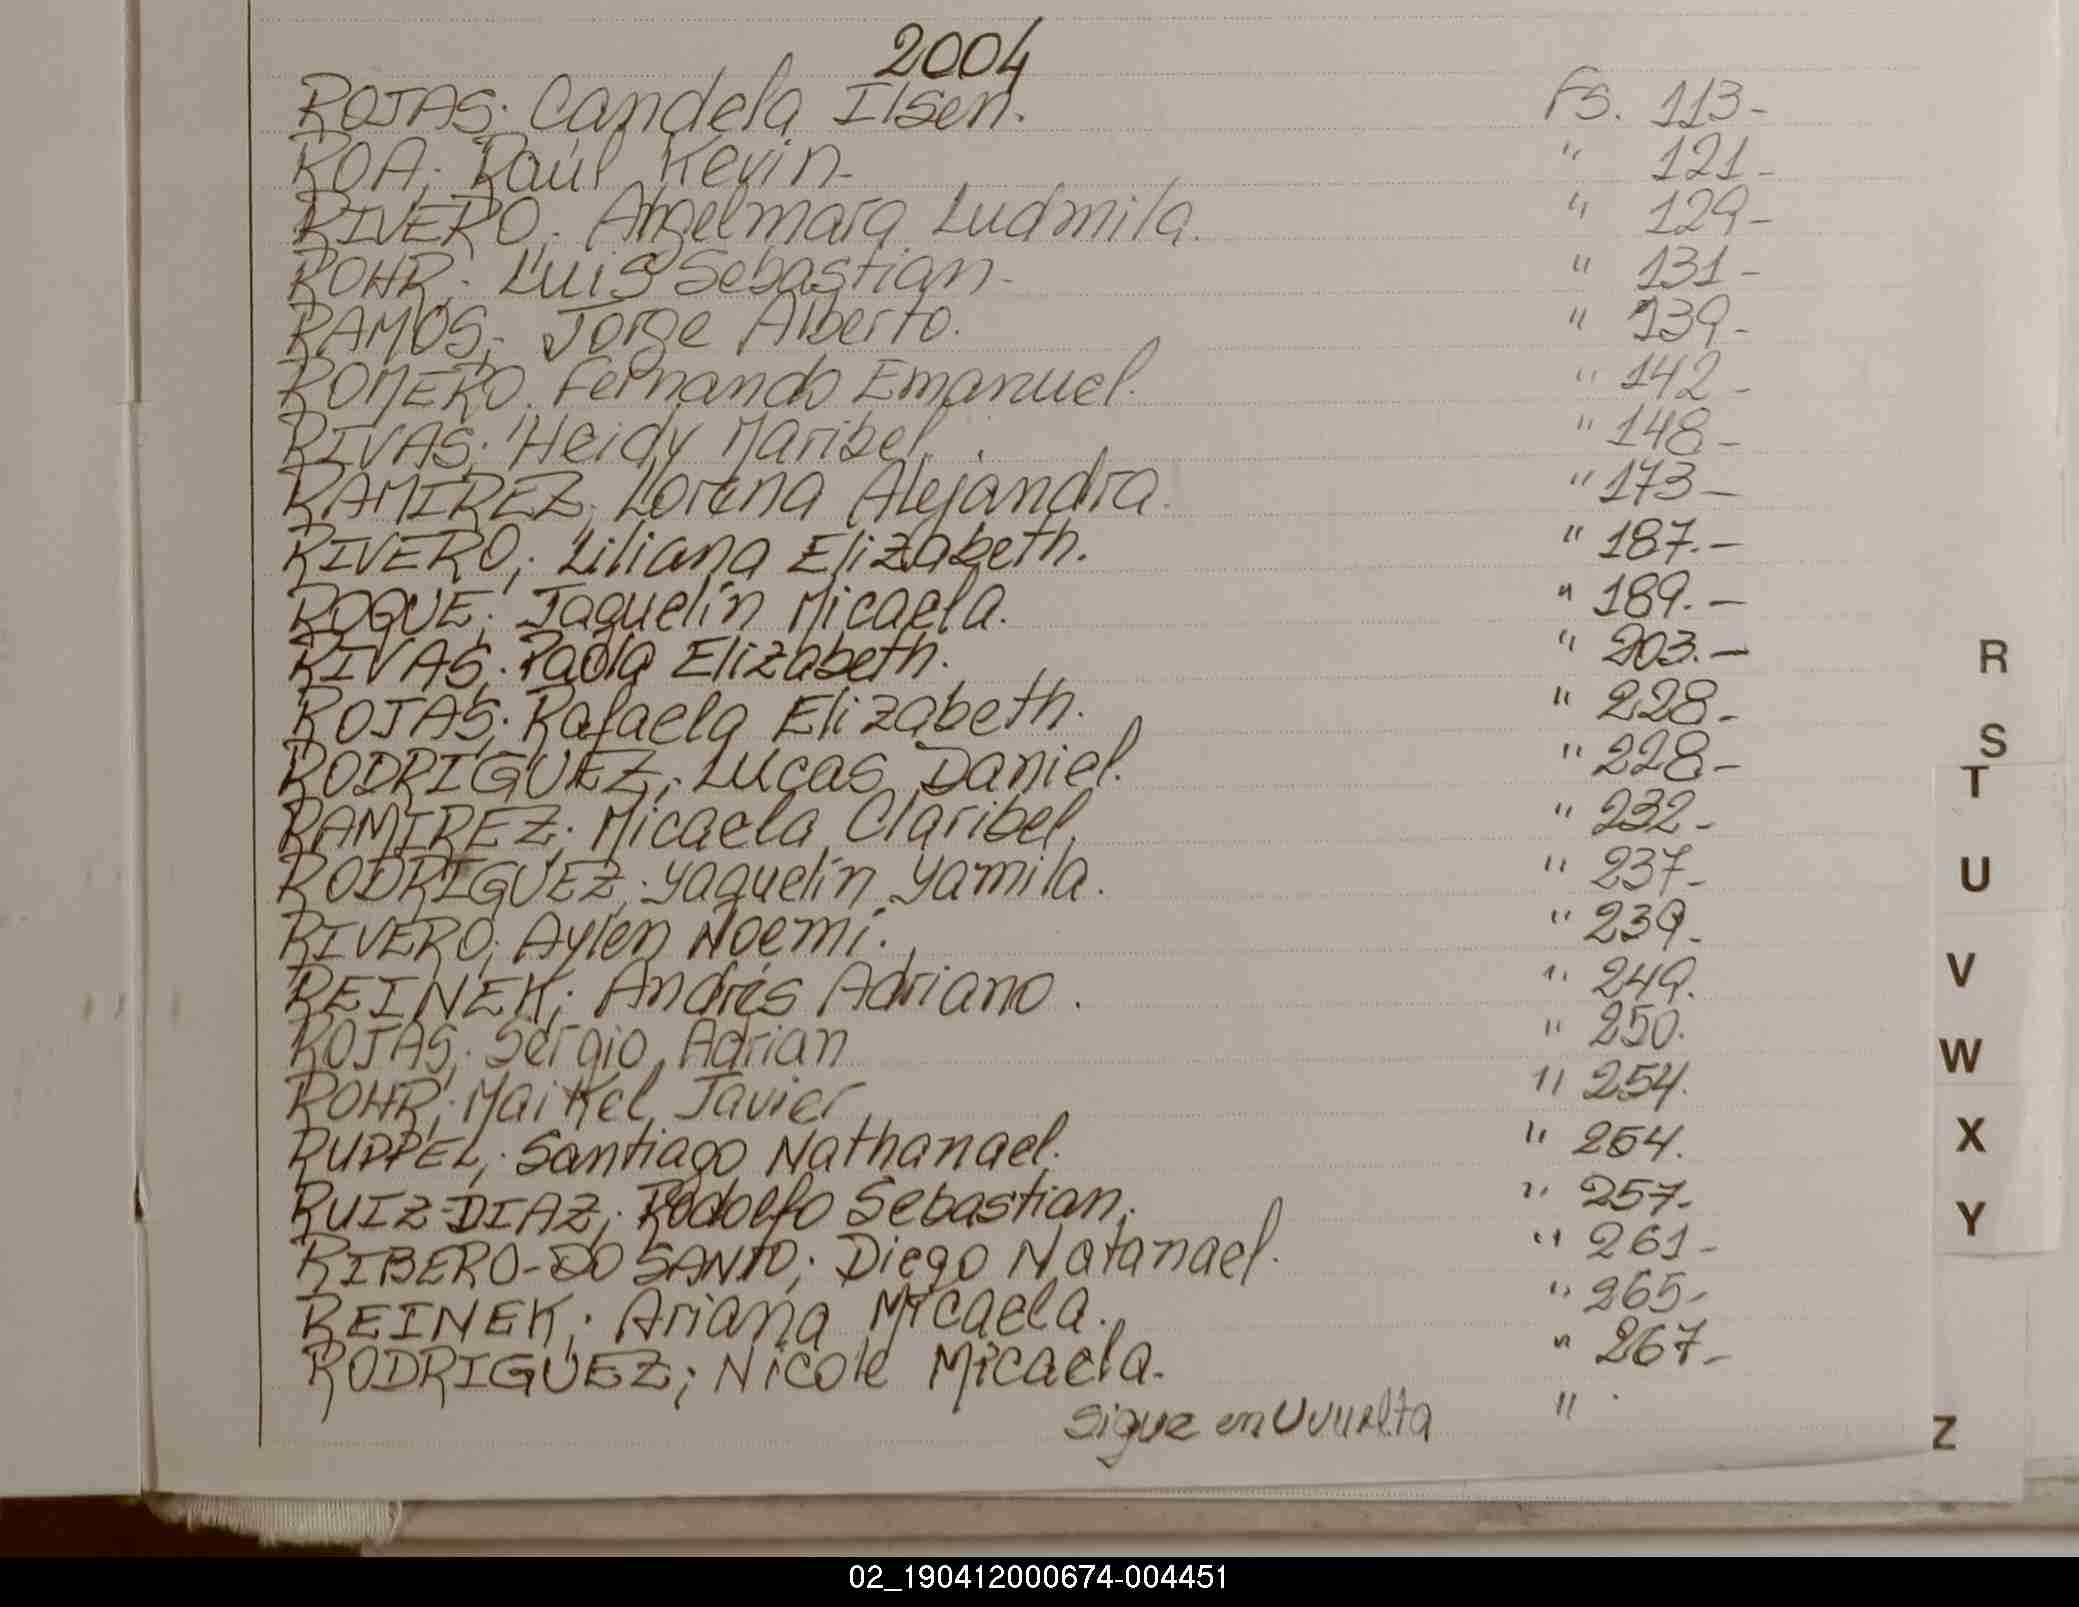 2004
ROJAS; Candela Ilsen. Fs. 113-
ROA; Raúl Kevin- " 121-
RIVERO; Angelmara Ludmila. " 129-
ROHR; Luis Sebastian- " 131-
RAMOS; Jorge Alberto. " 139-
ROMERO. Fernando Emanuel. " 142-
RIVAS; Heidy Maribel. " 148-
RAMIREZ; Lorena Alejandra. " 173-
RIVERO; Liliana Elizabeth. " 187.-
ROQUE; Jaquelín Micaela. " 189.-
RIVAS; Paola Elizabeth. " 203.-
ROJAS; Rafaela Elizabeth. " 228-
RODRIGUEZ; Lucas Daniel. " 228-
RAMIREZ; Micaela Claribel. " 232-
RODRIGUEZ; Yaquelín Yamila. " 237-
RIVERO; Aylen Noemí. " 239-
REINEK; Andrés Adriano. " 249.
ROJAS; Sergio Adrian " 250.
ROHR; Maikel Javier " 254.
RUPPEL; Santiago Nathanael. " 254.
RUIZ-DIAZ; Rodolfo Sebastian. " 257-
RIBERO-DO SANTO; Diego Natanael. " 261-
REINEK; Ariana Micaela. " 265-
RODRIGUEZ; Nicole Micaela. " 267-
Sigue en Uvuelta "
R
S
T
U
V
W
X
Y
Z
02_190412000674-004451